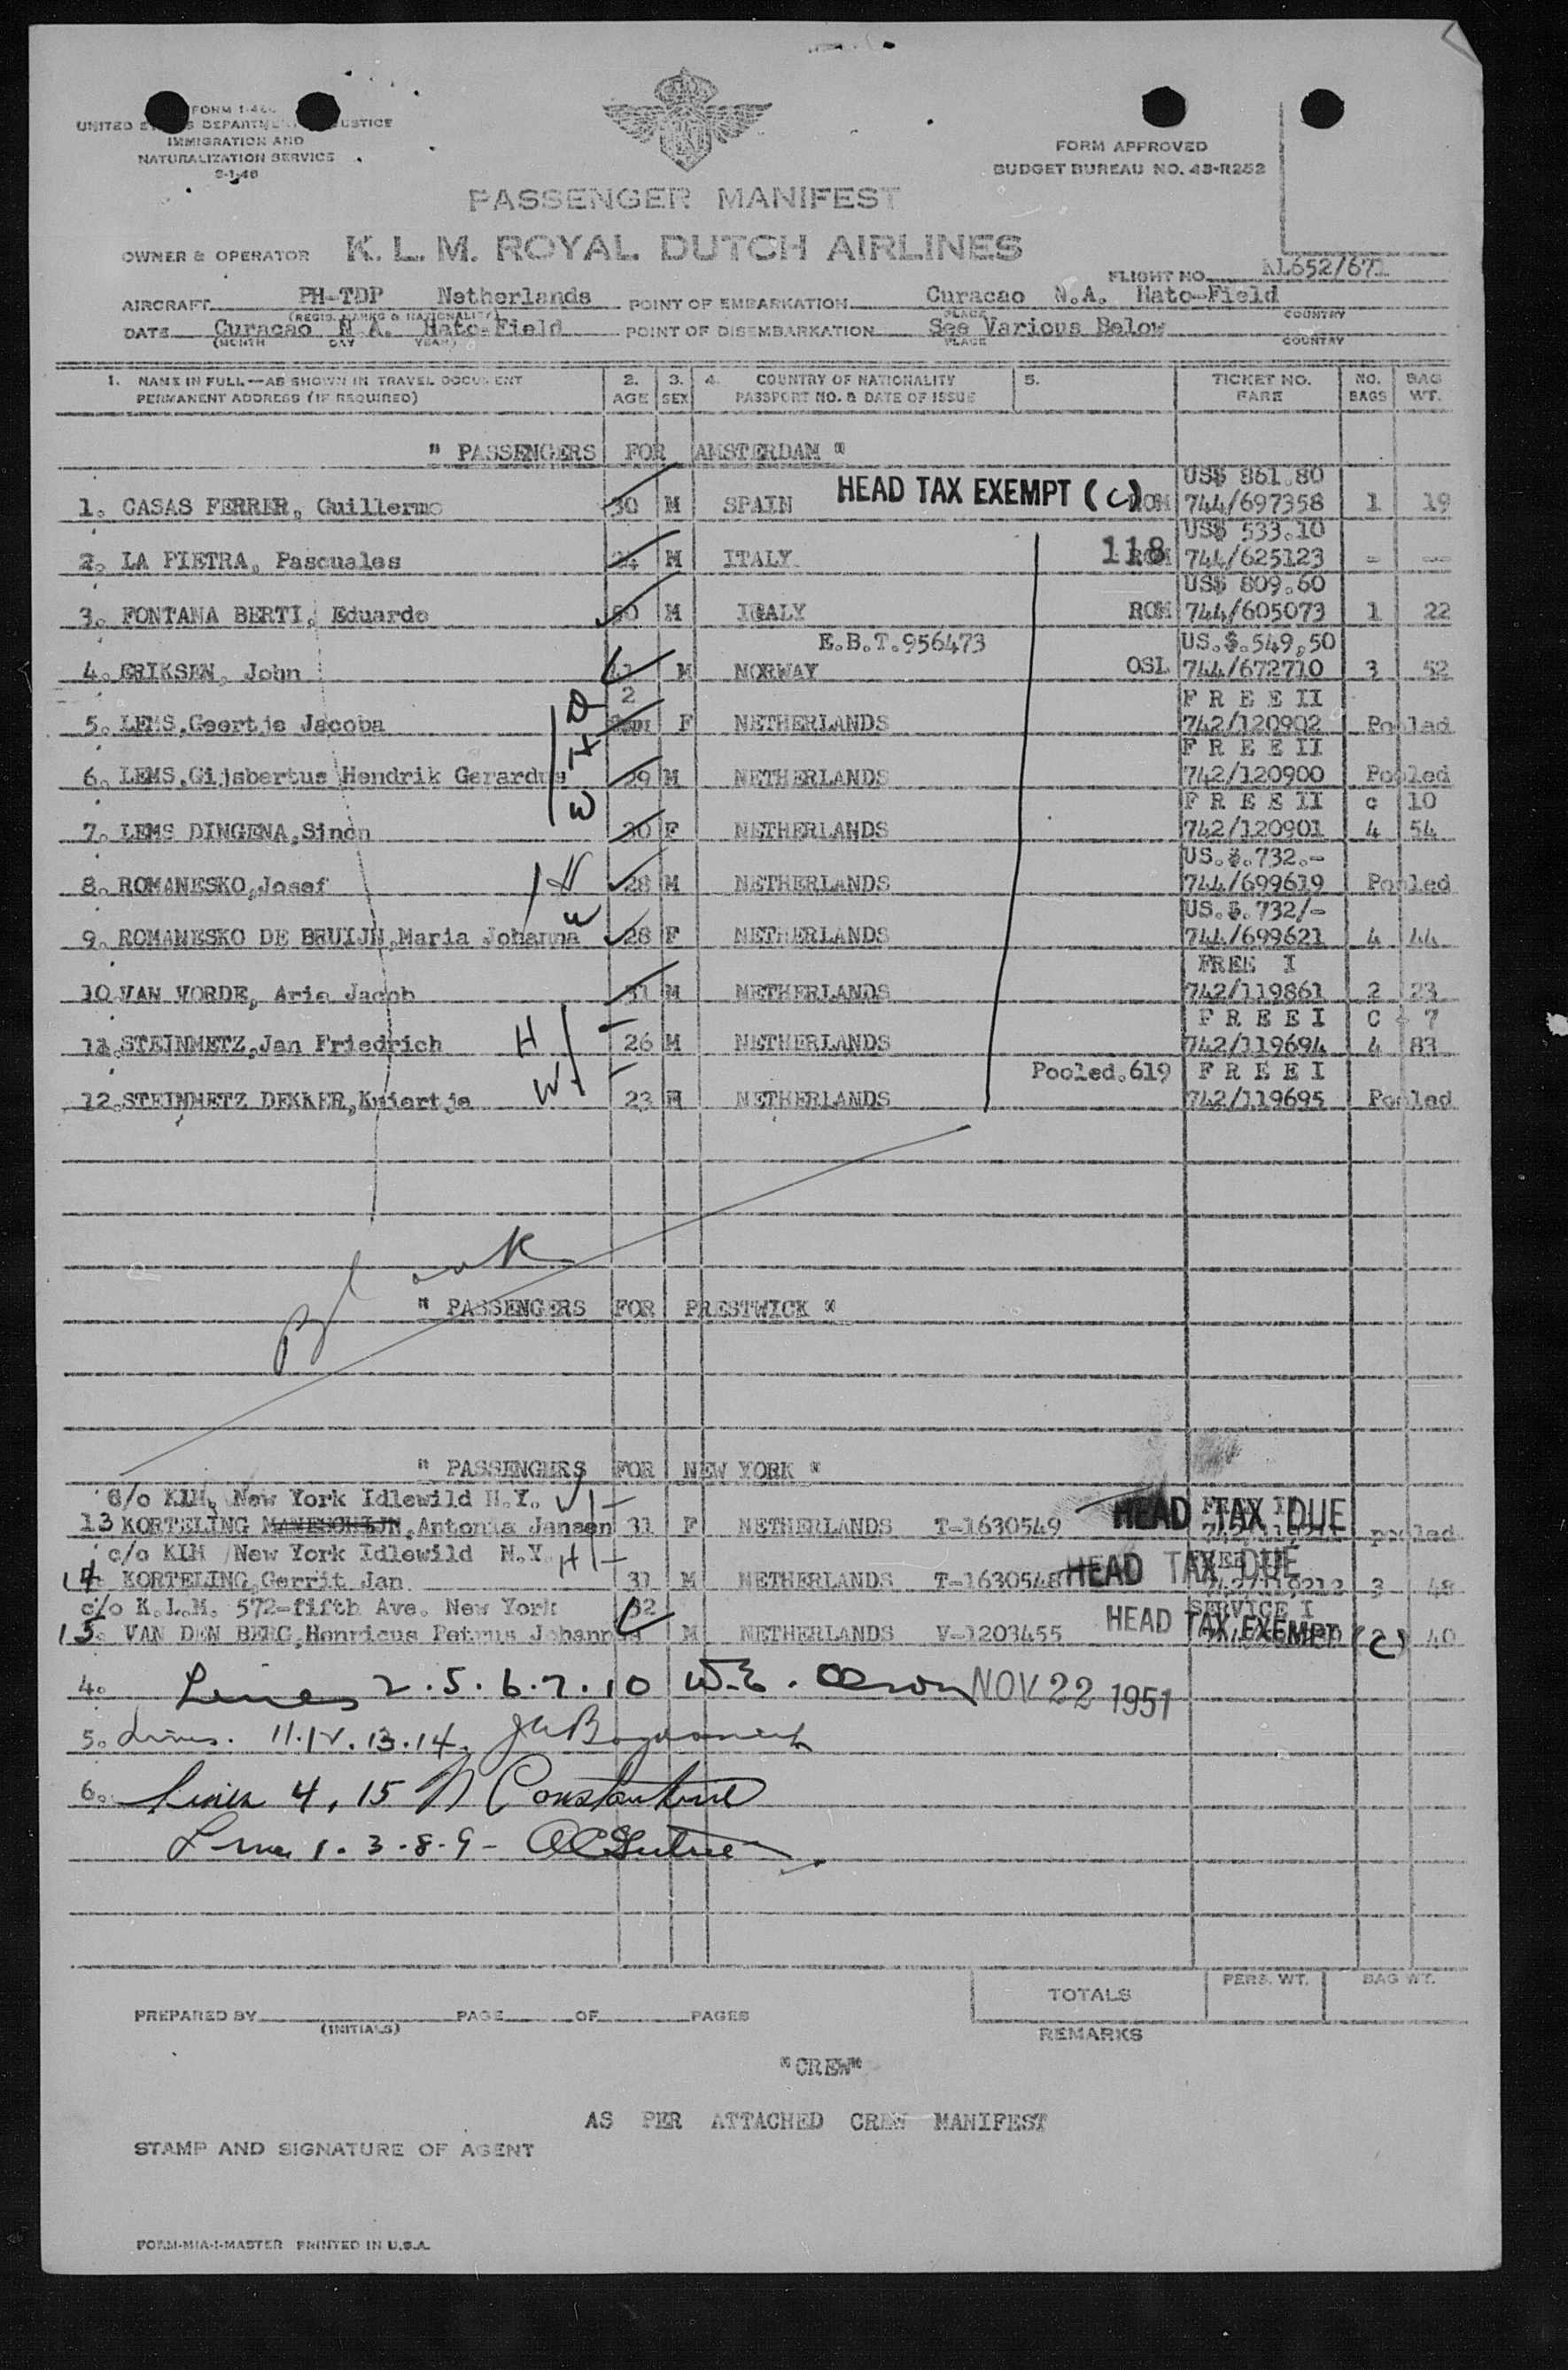 FORM I-466
UNITED STATES DEPARTMENT OF JUSTICE
IMMIGRATION AND
NATURALIZATION SERVICE
9-1-48
FORM APPROVED
BUDGET BUREAU NO. 43-R252
PASSENGER MANIFEST
OWNER & OPERATOR K. L. M. ROYAL DUTCH AIRLINES
FLIGHT NO. KL652/671
AIRCRAFT PH-TDP Netherlands POINT OF EMBARKATION Curacao N.A. Hato-Field
(REGIS. MARKS & NATIONALITY) PLACE COUNTRY
DATE Curacao N A. Hato-Field POINT OF DISEMBARKATION See Various Below
(MONTH DAY YEAR) PLACE COUNTRY
1. NAME IN FULL—AS SHOWN IN TRAVEL DOCUMENT 2. 3. 4. COUNTRY OF NATIONALITY 5. TICKET NO. NO. BAG
PERMANENT ADDRESS (IF REQUIRED) AGE SEX PASSPORT NO. & DATE OF ISSUE FARE BAGS WT.
" PASSENGERS FOR AMSTERDAM "
US$ 861.80
1. CASAS FERRER, Guillermo 30 M SPAIN HEAD TAX EXEMPT (C) ROM 744/697358 1 19
US$ 533.10
2. LA PIETRA, Pascuales 24 M ITALY 118 ROM 744/625123 - --
US$ 809.60
3. FONTANA BERTI, Eduardo 60 M ITALY ROM 744/605073 1 22
E.B.T.956473 US.$.549,50
4. ERIKSEN, John M NORWAY OSL 744/672710 3 52
2 F R E E II
5. LEMS,Geertje Jacoba F NETHERLANDS 742/120902 Pooled
F R E E II
6. LEMS,Gijsbertus Hendrik Gerardus 29 M NETHERLANDS 742/120900 Pooled
F R E E II c 10
7. LEMS DINGENA,Sinon 30 F NETHERLANDS 742/120901 4 54
US.$.732.-
8. ROMANESKO,Josef H 28 M NETHERLANDS 744/699619 Pooled
US.$.732/-
9. ROMANESKO DE BRUIJN,Maria Johanna W 28 F NETHERLANDS 744/699621 4 44
FREE I
10 VAN VORDE, Arie Jacob 31 M NETHERLANDS 742/119861 2 23
F R E E I C - 7
11.STEINMETZ,Jan Friedrich H 26 M NETHERLANDS 742/119694 4 83
Pooled.619 F R E E I
12.STEINMETZ DEKKER,Kniertje W 23 NETHERLANDS 742/119695 Pooled
Blank
" PASSENGERS FOR PRESTWICK "
" PASSENGERS FOR NEW YORK "
C/o KLM, New York Idlewild N.Y. W
13 KORTELING MANESCHIJN,Antonia Jansen 31 F NETHERLANDS T-1630549 HEAD TAX DUE pooled
c/o KLM New York Idlewild N.Y. H
14 KORTELING,Gerrit Jan 31 M NETHERLANDS T-1630548 HEAD TAX DUE 742/119212 3 48
c/o K.L.M. 572-fifth Ave. New York 32 SERVICE I
15. VAN DEN BERG,Henricus Petrus Johannes M NETHERLANDS V-1203455 HEAD TAX EXEMPT (C) 40
4. Lines 2.5.6.7.10 W.E. Olson NOV 22 1951
5. Lines. 11.12.13.14.
6. Lines 4, 15 N Constantine
Lines 1.3.8.9-
TOTALS PERS. WT. BAG WT.
PREPARED BY PAGE OF PAGES
(INITIALS)
REMARKS
"CREW"
AS PER ATTACHED CREW MANIFEST
STAMP AND SIGNATURE OF AGENT
FORM-MIA-I-MASTER PRINTED IN U.S.A.